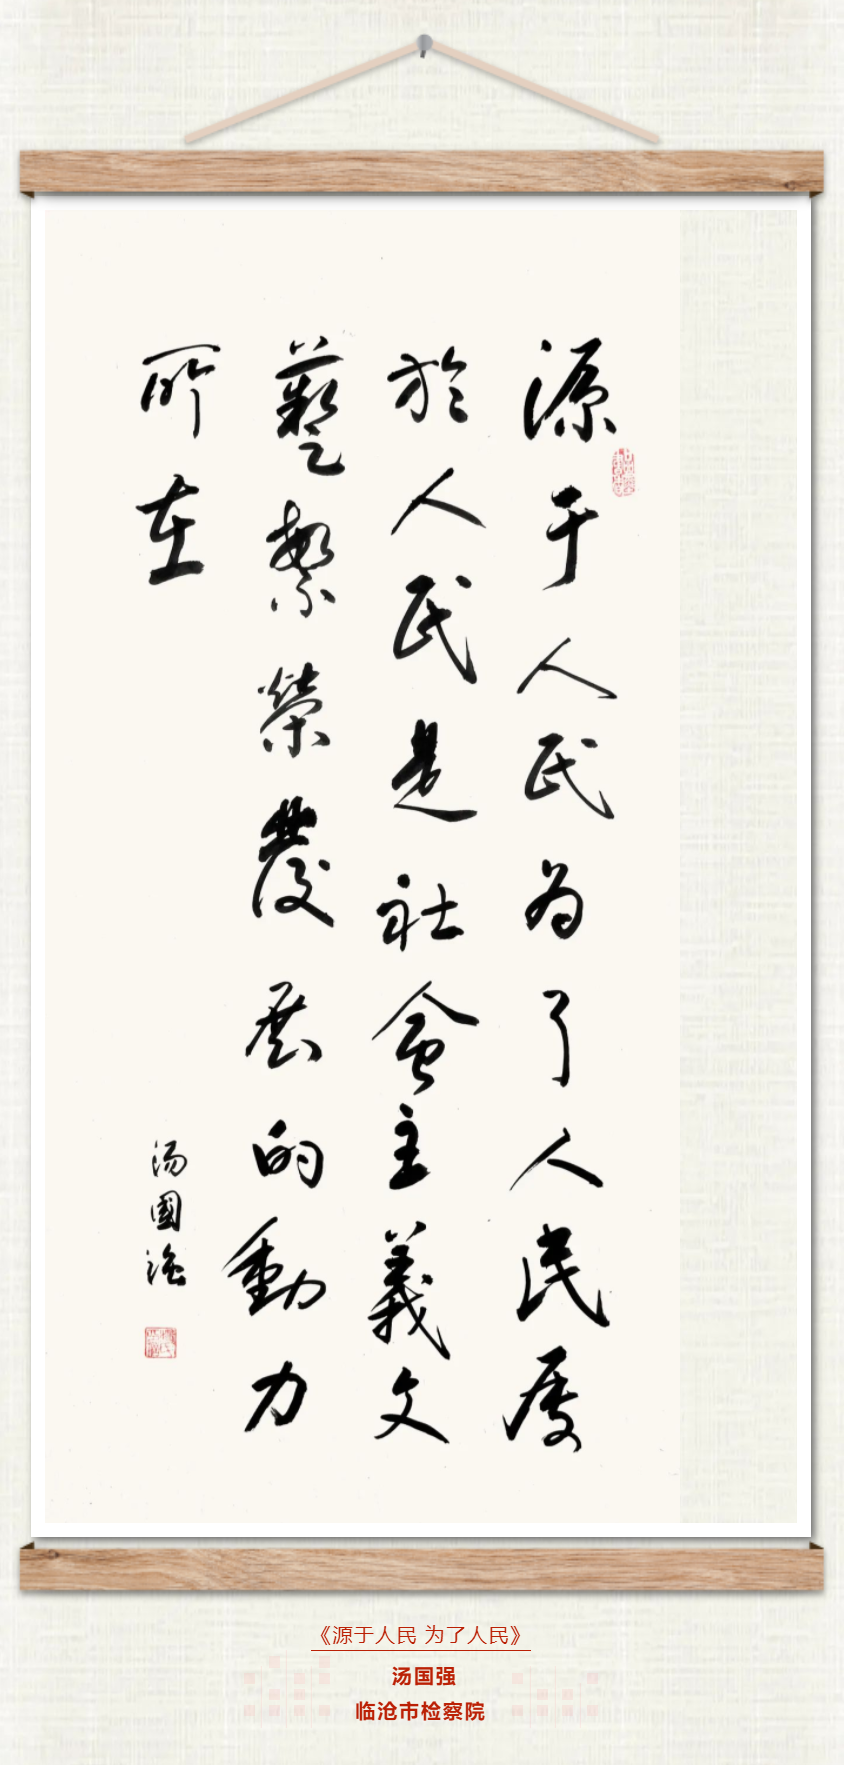 源于人民为了人民属
於人民是社會主義文
藝繁榮發展的動力
所在
汤國強
《源于人民 为了人民》
汤国强
临沧市检察院